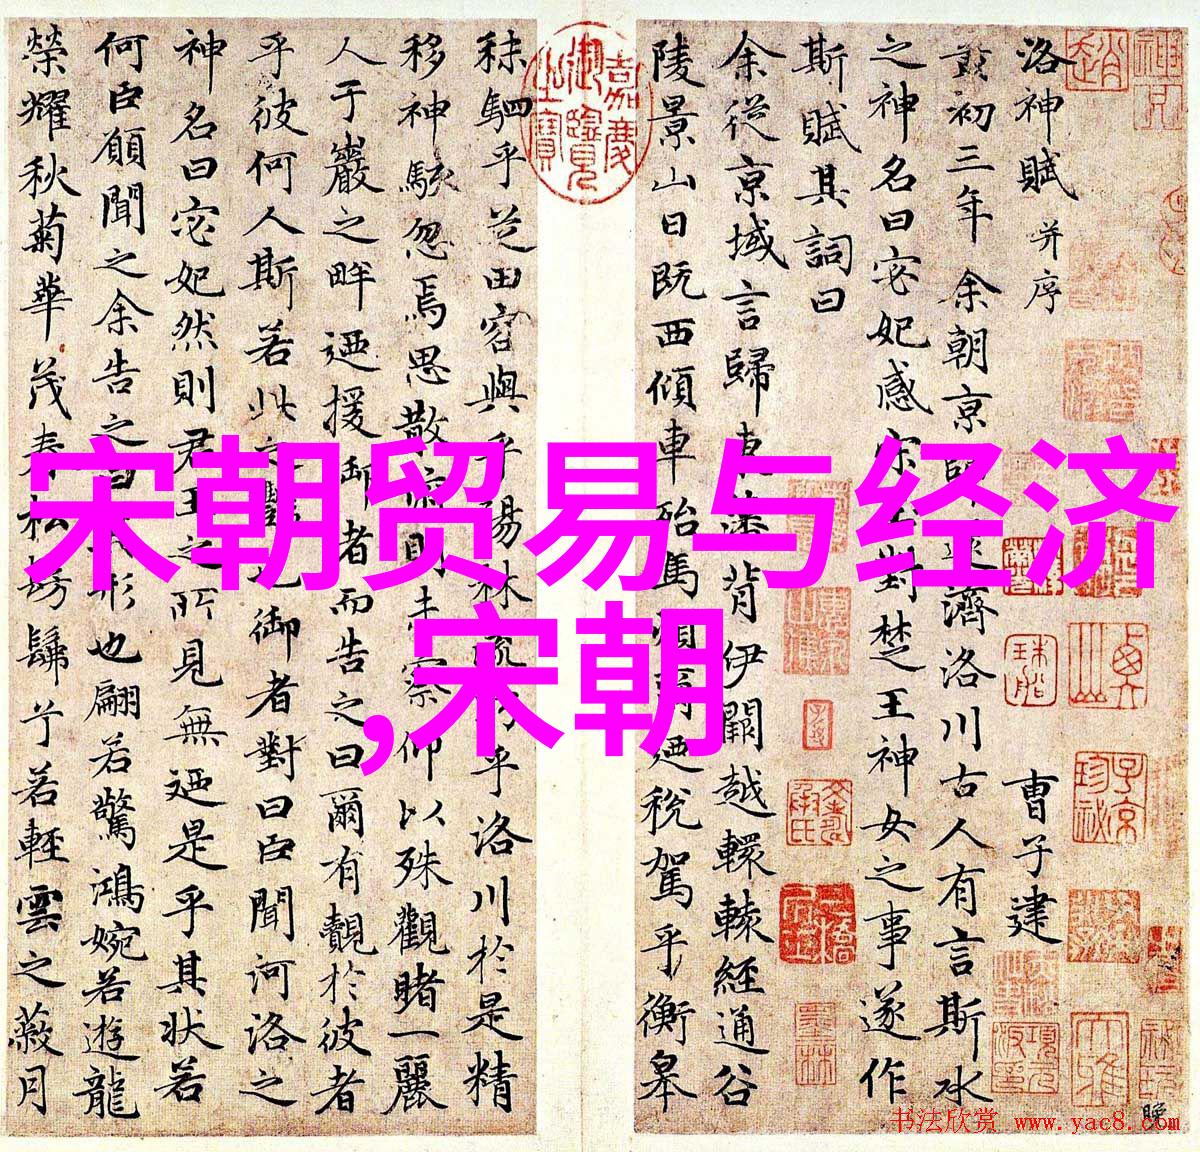 洛神賦 并序 曹子建
黃初三年余朝京師還濟洛川古人有言斯水
之神名曰宓妃感宋玉對楚王神女之事遂作
斯賦其詞曰
余從京域言歸東藩背伊闕越轘轅經通谷
陵景山日既西傾車殆馬煩爾廼稅駕乎衡皋
秣駟乎芝田容與乎楊林流眄乎洛川於是精
移神駭忽焉思散俯則未察仰以殊觀睹一麗
人于巖之畔迺援御者而告之曰爾有覿於彼者
乎彼何人斯若此之豔也御者對曰臣聞河洛之
神名曰宓妃然則君王之所見無迺是乎其状若
何臣願聞之余告之曰其形也翩若驚鴻婉若遊龍
榮耀秋菊華茂春松髣髴兮若輕雲之蔽月
嘉慶御覽之寶
宋朝贸易与经济
,宋朝
书法欣赏 www.yac8.com